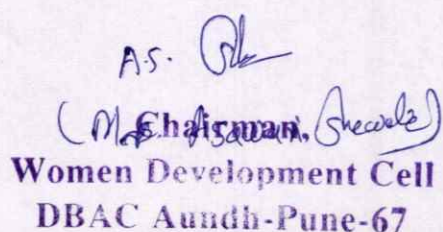 A.S.
(Mrs. Asawari Shewale)
Chairman,
Women Development Cell
DBAC Aundh-Pune-67